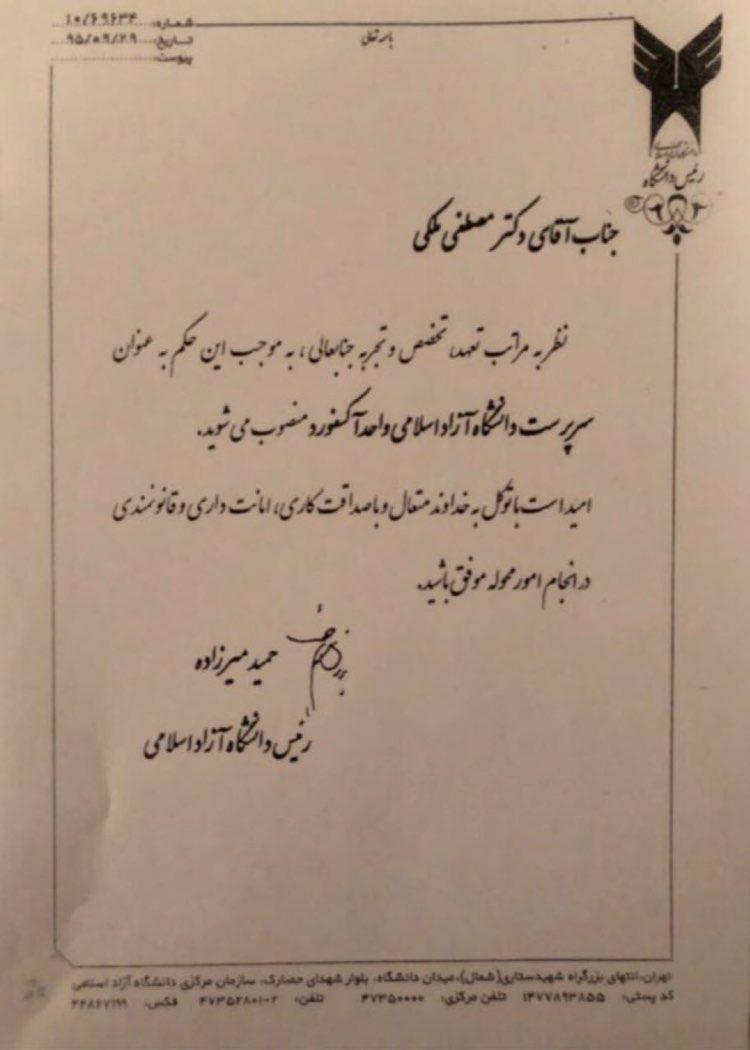 باسمه تعالی
شماره: ۱۰/۶۹۶۳۴
تاریخ: ۹۵/۰۹/۲۹
پیوست:
دانشگاه آزاد اسلامی
رئیس دانشگاه
جناب آقای دکتر مصطفی ملکی
نظر به مراتب تعهد، تخصص و تجربه جنابعالی، به موجب این حکم به عنوان
سرپرست دانشگاه آزاد اسلامی واحد آکسفورد منصوب می شوید.
امید است با توکل به خداوند متعال و با صداقت کاری، امانت داری و قانونمندی
در انجام امور محوله موفق باشید.
حمید میرزاده
رئیس دانشگاه آزاد اسلامی
تهران، انتهای بزرگراه شهید ستاری (شمال)، میدان دانشگاه، بلوار شهدای حصارک، سازمان مرکزی دانشگاه آزاد اسلامی
کد پستی: ۱۴۷۷۸۹۳۸۵۵ تلفن مرکزی: ۴۷۳۵۰۰۰۰ تلفن: ۴۷۳۵۲۸۰۱-۲ فکس: ۴۴۸۶۷۱۹۹